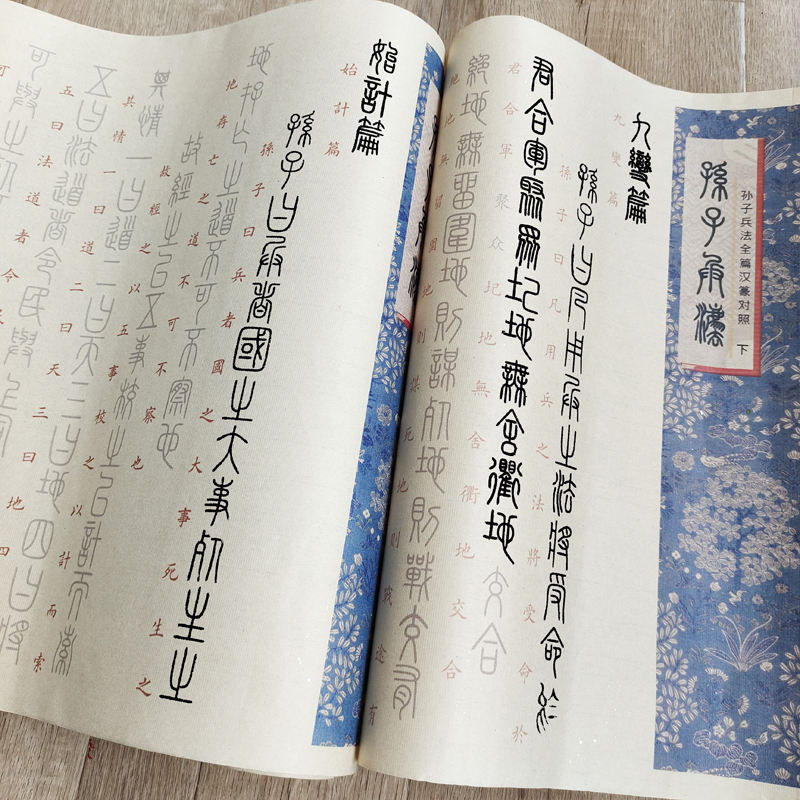 孫子兵法
孙子兵法全篇汉篆对照 下
九變篇
九變篇
孫子曰凡用兵之法將受命於
孫子曰凡用兵之法將受命於
君合軍聚眾圮地無舍衢地交合
君合軍聚众圮地無舍衢地交合
絕地無留圍地則謀死地則戰
地無留圍地則謀死地則戰途有
始計篇
始計篇
孫子曰兵者國之大事死生之
孫子曰兵者國之大事死生之
地存亡之道不可不察也
地存亡之道不可不察也
故經之以五事校之以計而索
故經之以五事校之以計而索
其情一曰道二曰天三曰地四曰將
其情一曰道二曰天三曰地四
五曰法道者令民與上
五曰法道者令民
可與之
可與之